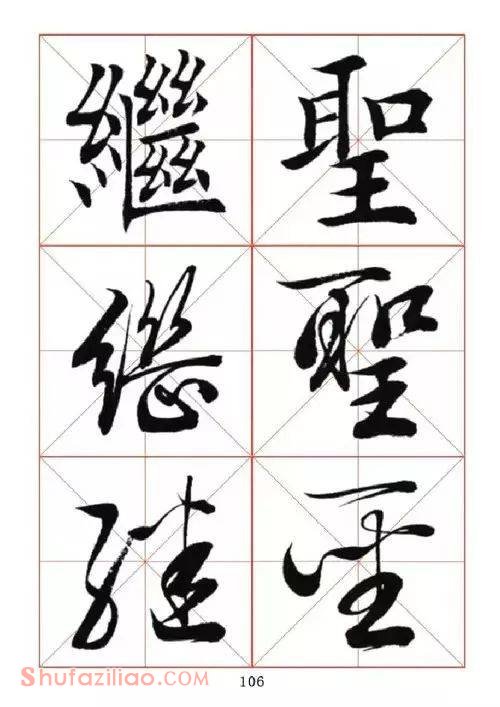 聖聖聖
繼繼繼
Shufaziliao.com
106